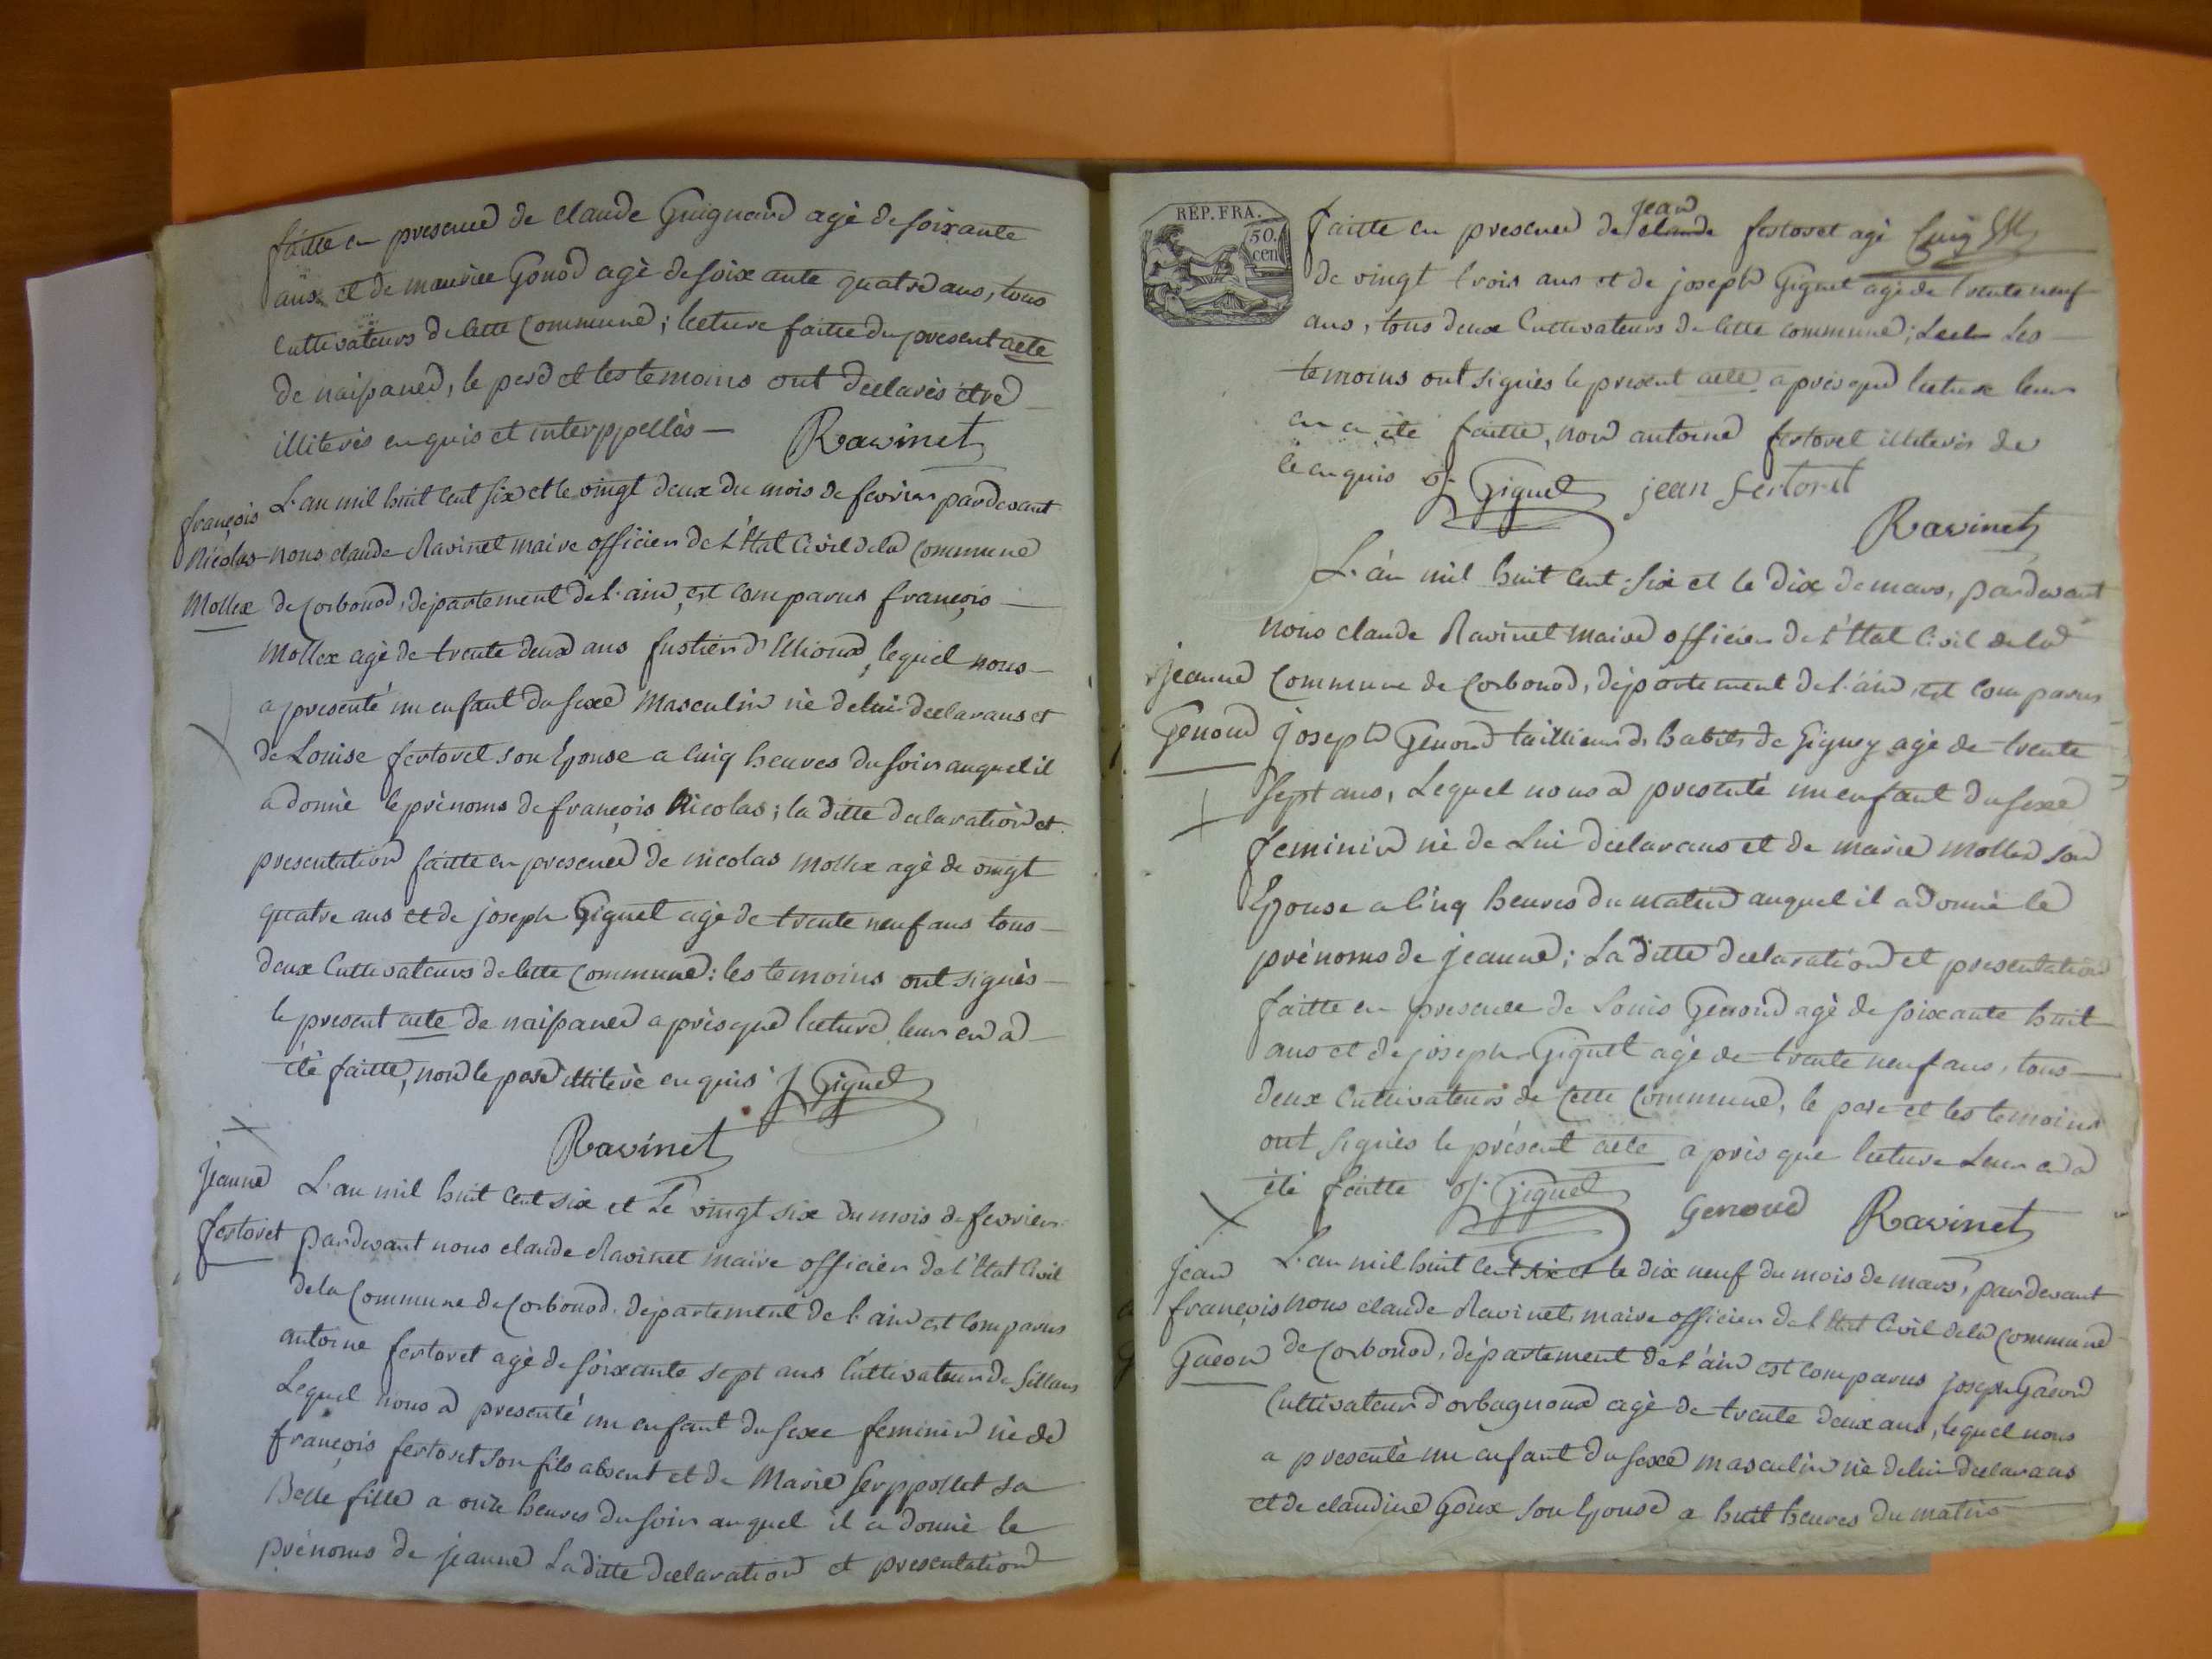 faitte en presence de claude Guignard agè de soixante
ans et de maurice Gonod agè de soixante quatre ans, tous
cultivateurs de cette commune; lecture faitte du present acte
de naissance, le pere et les temoins ont declarès être
illiterès enquis et interppellès —
Ravinet
françois
Nicolas
Mollex
L'an mil huit cent six et le vingt deux du mois de fevrier pardevant
nous claude Ravinet maire officier de l'État Civil de la commune
de Corbonod, département de l'ain, est comparus françois —
Mollex agè de trente deux ans fustier d'Etlioud, lequel nous —
a presenté un enfant du sexe Masculin nè de lui declarans et
de Louise fertoret son Epouse a cinq heures du soir auquel il
a donnè le prènoms de françois Nicolas; la ditte declaration et
presentation faitte en presence de nicolas mollex agè de vingt
quatre ans et de joseph Giguet agè de trente neuf ans tous —
deux Cultivateurs de cette commune: les temoins ont signès —
le present acte de naissance après que lecture leur en a
étè faitte, non le pere illiterè enquis J Giguet
Ravinet
jeanne
fertoret
L'an mil huit cent six et Le vingt six du mois de fevrier
pardevant nous claude Ravinet maire officier de l'Etat Civil
de la Commune de Corbonod, département de l'ain est comparus
antoine fertoret agè de soixante sept ans Cultivateur de Sillans
Lequel nous a presenté un enfant du sexe feminin nè de
françois fertoret son fils absent et de Marie Serppollet sa
Belle fille a onze heures du soir auquel il a donnè le
prénoms de jeanne La ditte declaration et presentation
REP. FRA.
50.
cen
jean
faitte en presence de claude fertoret agè
de vingt trois ans et de joseph Giguet agè de trente neuf
ans, tous deux Cultivateurs de cette commune; Les —
temoins ont signès le present acte après que lecture leur
en a étè faitte, non antoine fertoret illiterès de
ce enquis J. Giguet jean fertoret
Ravinet
L'an mil huit cent six et le dix de mars, pardevant
nous claude Ravinet maire officier de l'Etat Civil de la
jeanne
Genoud
Commune de Corbonod, département de l'ain, est comparus
joseph Genoud taillieur d. habits de Gigney agè de trente
sept ans, Lequel nous a presenté un enfant du sexe
feminin nè de Lui declarans et de marie mollex son
Epouse a cinq heures du matin auquel il a donnè le
prénoms de jeanne; La ditte declaration et presentation
faitte en presence de Louis Genoud agè de soixante huit
ans et de joseph Giguet agè de trente neuf ans, tous —
deux Cultivateurs de cette Commune, le pere et les temoins
ont signès le présent acte après que lecture Leur en a
étè faitte J. Giguet Genoud Ravinet
jean
françois
Gacon
L'an mil huit cent six et le dix neuf du mois de mars, pardevant
nous claude Ravinet, maire officier de l'Etat Civil de la commune
de Corbonod, département de l'ain est comparus joseph Gacon
Cultivateur d'orbagnoux agè de trente deux ans, lequel nous
a presentè un enfant du sexe masculin nè de lui declarans
et de claudine Goux son Epouse a huit heures du matin